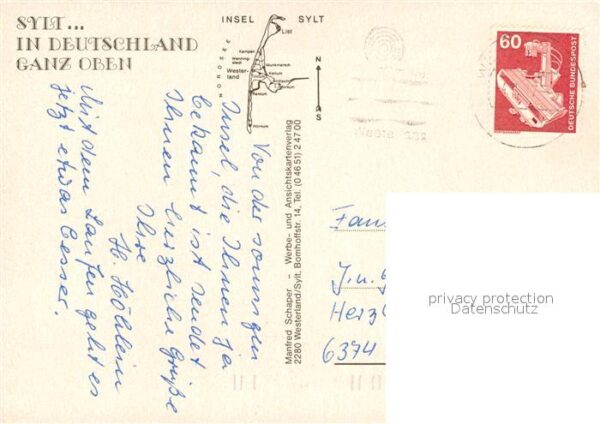 SYLT...
IN DEUTSCHLAND
GANZ OBEN
INSEL SYLT
NORDSEE
List
Kampen
Westerland
Munkmarsch
Keitum
Rantum
Hörnum
N
S
60
DEUTSCHE BUNDESPOST
Manfred Schaper – Werbe- und Ansichtskartenverlag
2280 Westerland/Sylt, Bomhoffstr. 14, Tel. (0 46 51) 2 47 00
Von der sonnigen
Insel, die Ihnen ja
bekannt ist sendet
Ihnen herzliche Grüße
Ihre
H. Höhlein
Mit dem Laufen geht es
jetzt etwas besser.
Fam
J.u.G
Herz
6374
privacy protection
Datenschutz